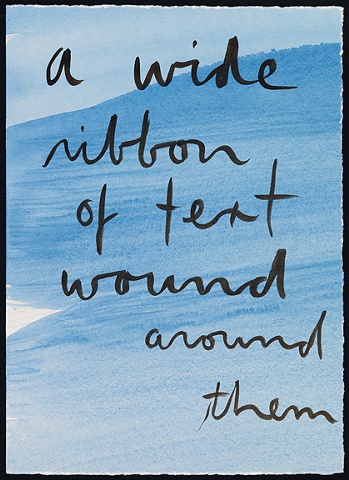 a wide
ribbon
of text
wound
around
them